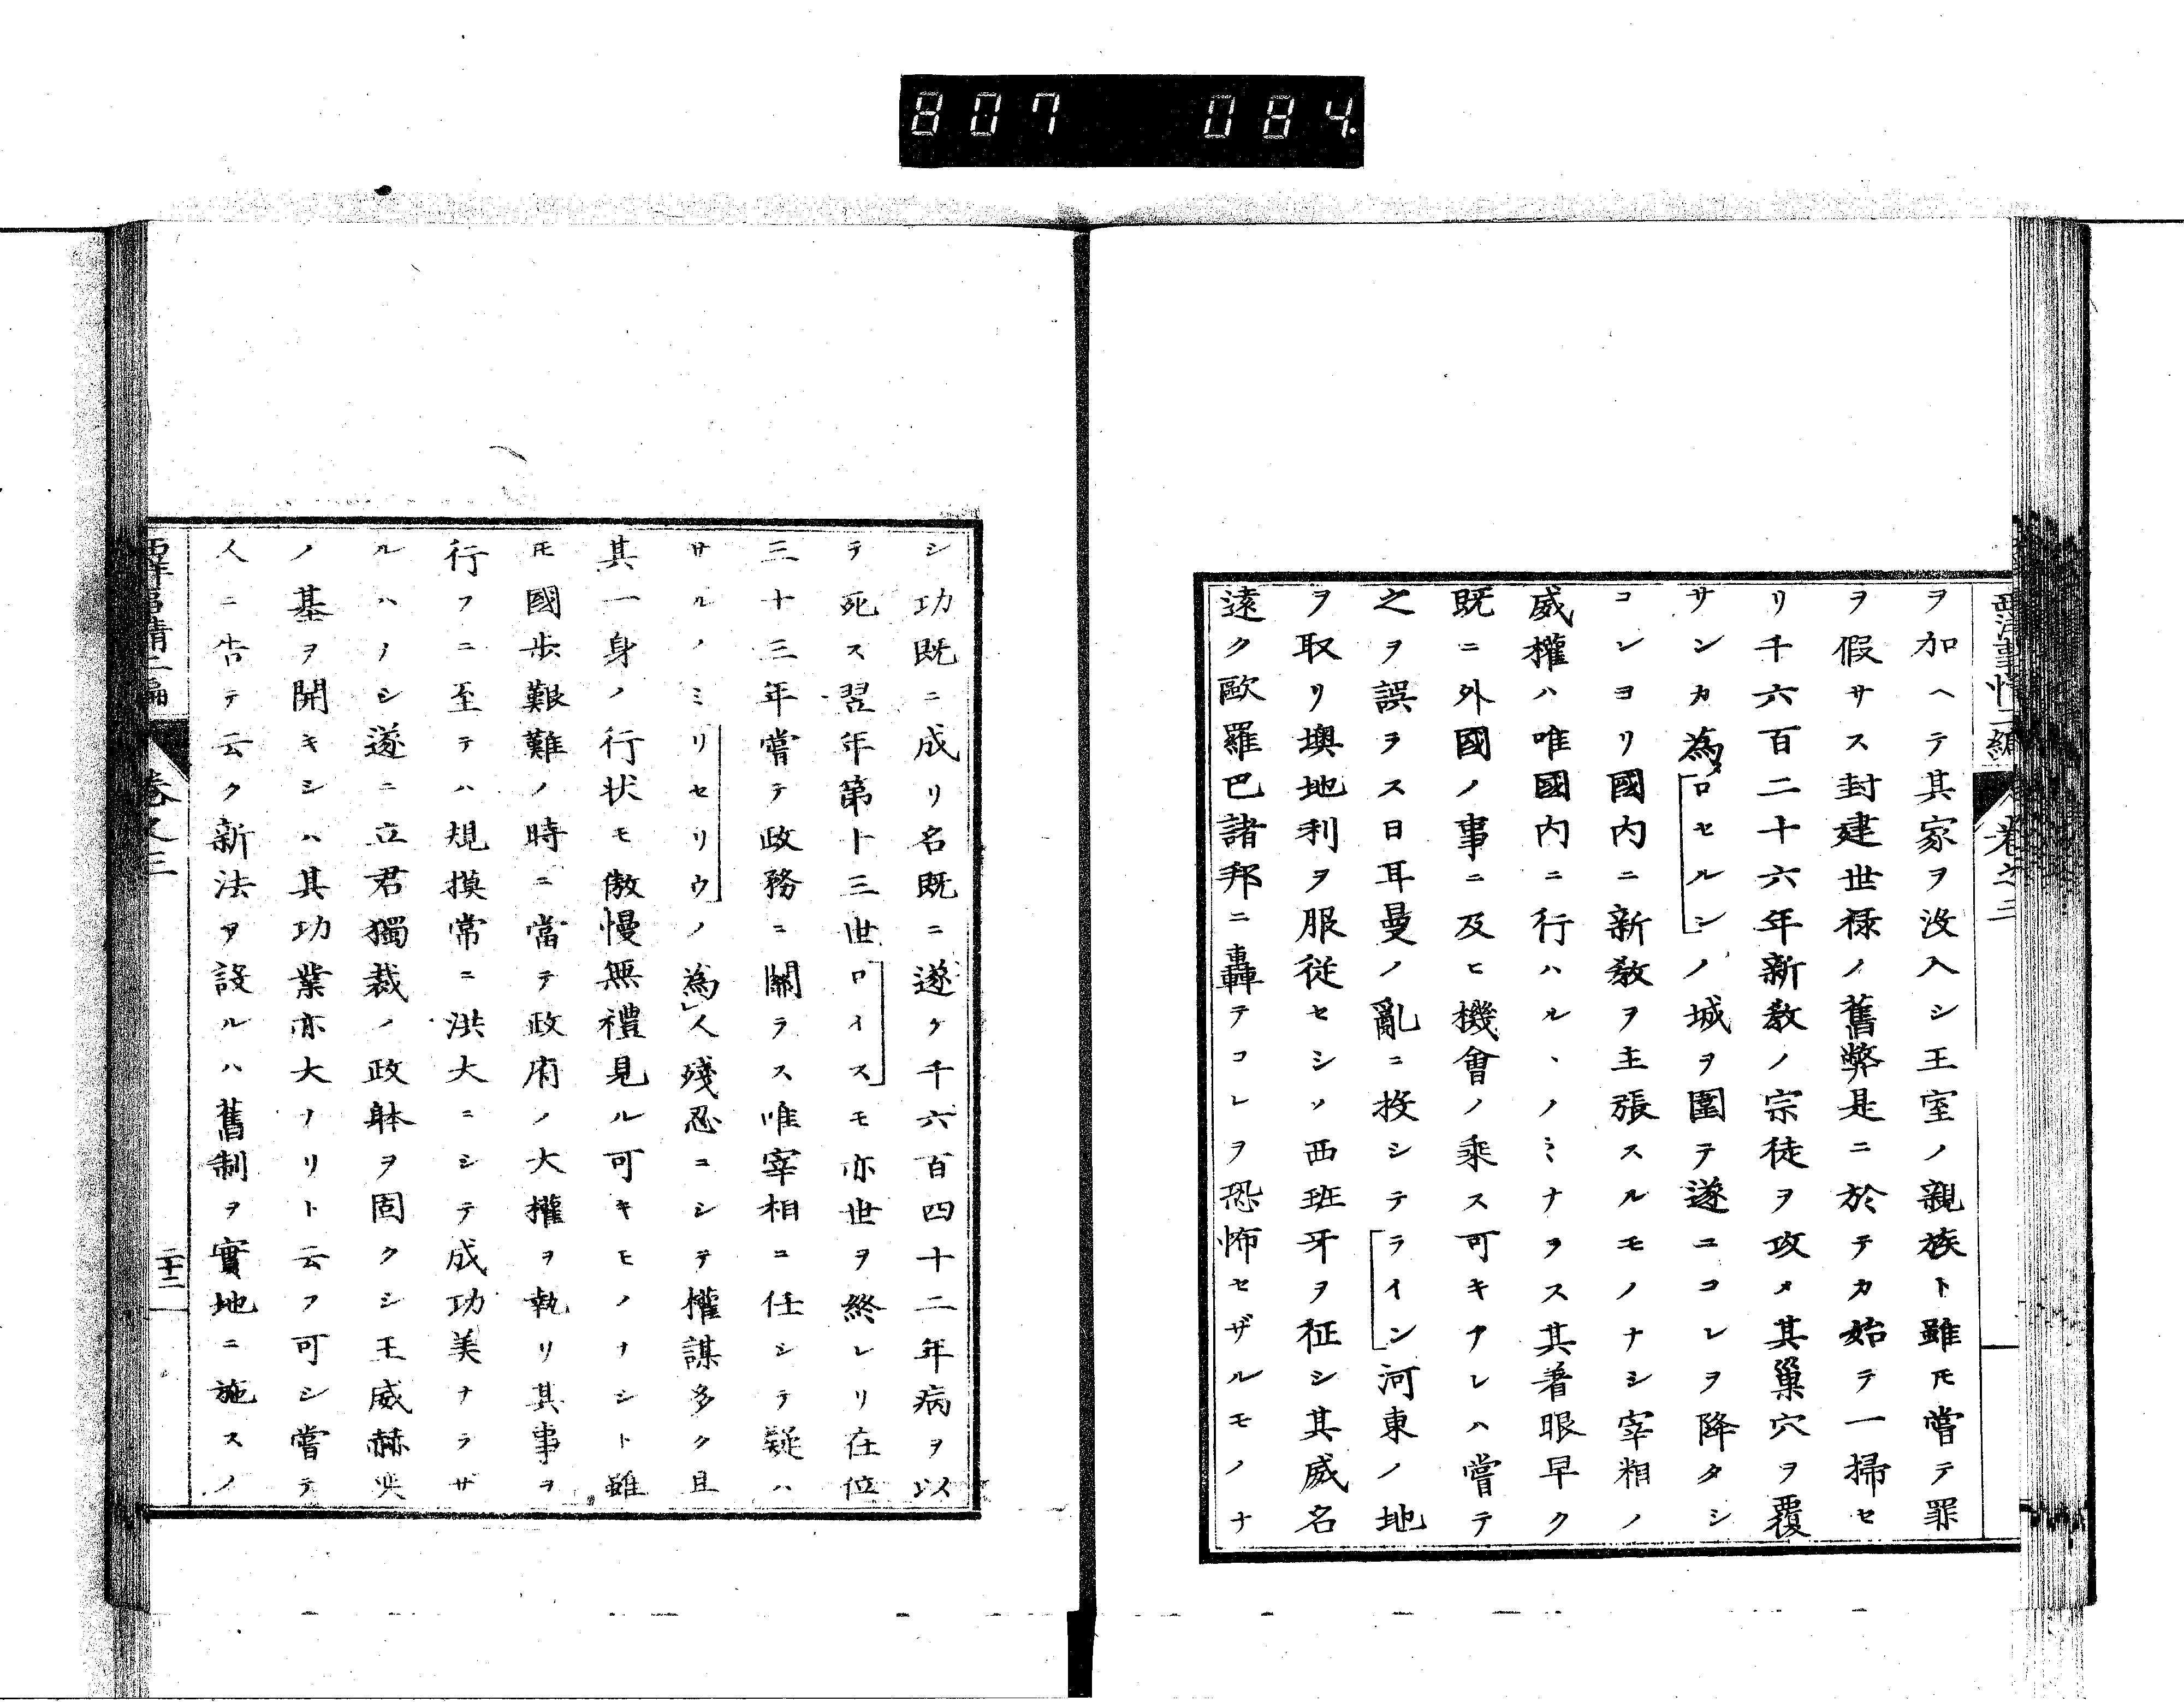 807 084.
西洋事情二編 巻之三
ヲ加ヘテ其家ヲ没入シ王室ノ親族ト雖𪜈嘗テ罪
ヲ假サス封建世禄ノ舊弊是ニ於テカ始テ一掃セ
リ千六百二十六年新教ノ宗徒ヲ攻メ其巢穴ヲ覆
サンカ為メロセルシノ城ヲ圍テ遂ニコレヲ降タシ
コレヨリ國内ニ新教ヲ主張スルモノナシ宰相ノ
威權ハ唯國内ニ行ハルヽノミナラス其着眼早ク
既ニ外國ノ事ニ及ヒ機會ノ乘ス可キアレハ嘗テ
之ヲ誤ラス日耳曼ノ亂ニ投シテライン河東ノ地
ヲ取リ墺地利ヲ服従セシメ西班牙ヲ征シ其威名
遠ク歐羅巴諸邦ニ轟テコレヲ恐怖セザルモノナ
シ功既ニ成リ名既ニ遂ケ千六百四十二年病ヲ以
テ死ス翌年第十三世ロイスモ亦世ヲ終レリ在位
三十三年嘗テ政務ニ關ラス唯宰相ニ任シテ疑ハ
サルノミリセリウノ為人殘忍ニシテ權謀多ク且
其一身ノ行状モ傲慢無禮見ル可キモノナシト雖
𪜈國歩艱難ノ時ニ當テ政府ノ大權ヲ執リ其事ヲ
行フニ至テハ規摸常ニ洪大ニシテ成功美ナラザ
ルハナシ遂ニ立君獨裁ノ政躰ヲ固クシ王威赫奕
ノ基ヲ開キシハ其功業亦大ナリト云フ可シ嘗テ
人ニ告テ云ク新法ヲ設ルハ舊制ヲ實地ニ施スノ
西洋事情二編 巻之三 二十二